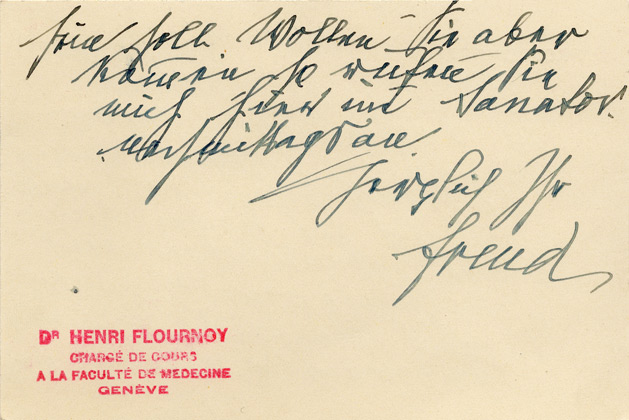 soll. Wollen Sie aber
kommen so rufen Sie
mich hier im Sanator.
nachmittags an.
Herzlich Ihr
Freud
DR HENRI FLOURNOY
CHARGÉ DE COURS
A LA FACULTÉ DE MEDECINE
GENÈVE